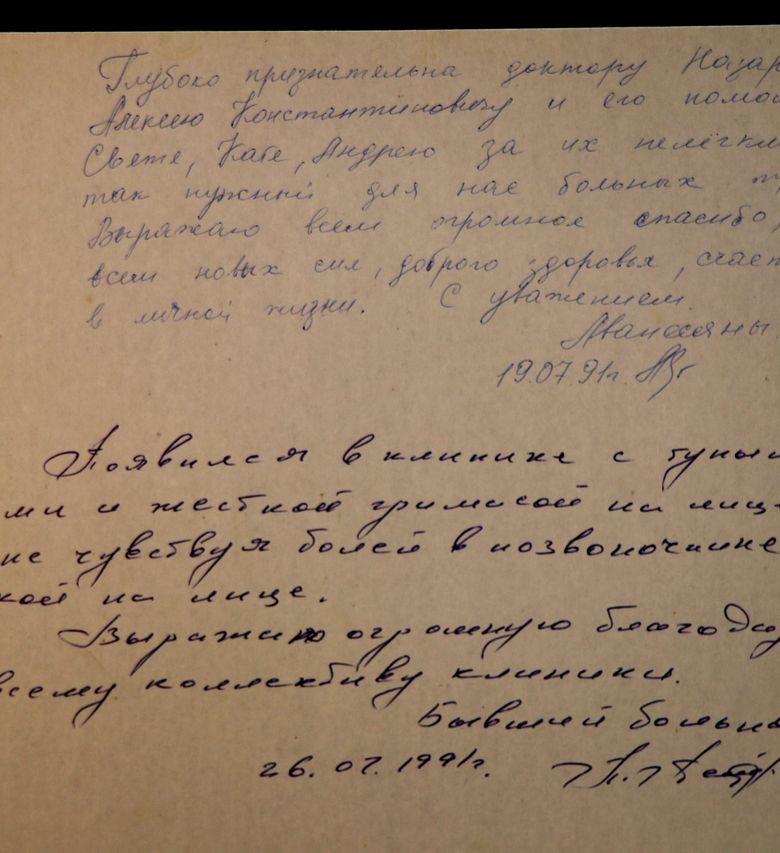 Глубоко признательна доктору Назар
Алексею Константиновичу и его помо
Свете, Кате, Андрею за их нелёгки
так нужный для нас больных
Выражаю всем огромное спасибо,
всем новых сил, доброго здоровья, счаст
в личной жизни. С уважением
Аванесяны
19.07.91г.
Появился в клинике с тупым
ми и жесткой гримасой на лиц
не чувствуя болей в позвоночнике
кой на лице.
Выражаю огромную благода
всему коллективу клиники.
Бывший больно
26.07.1991г.